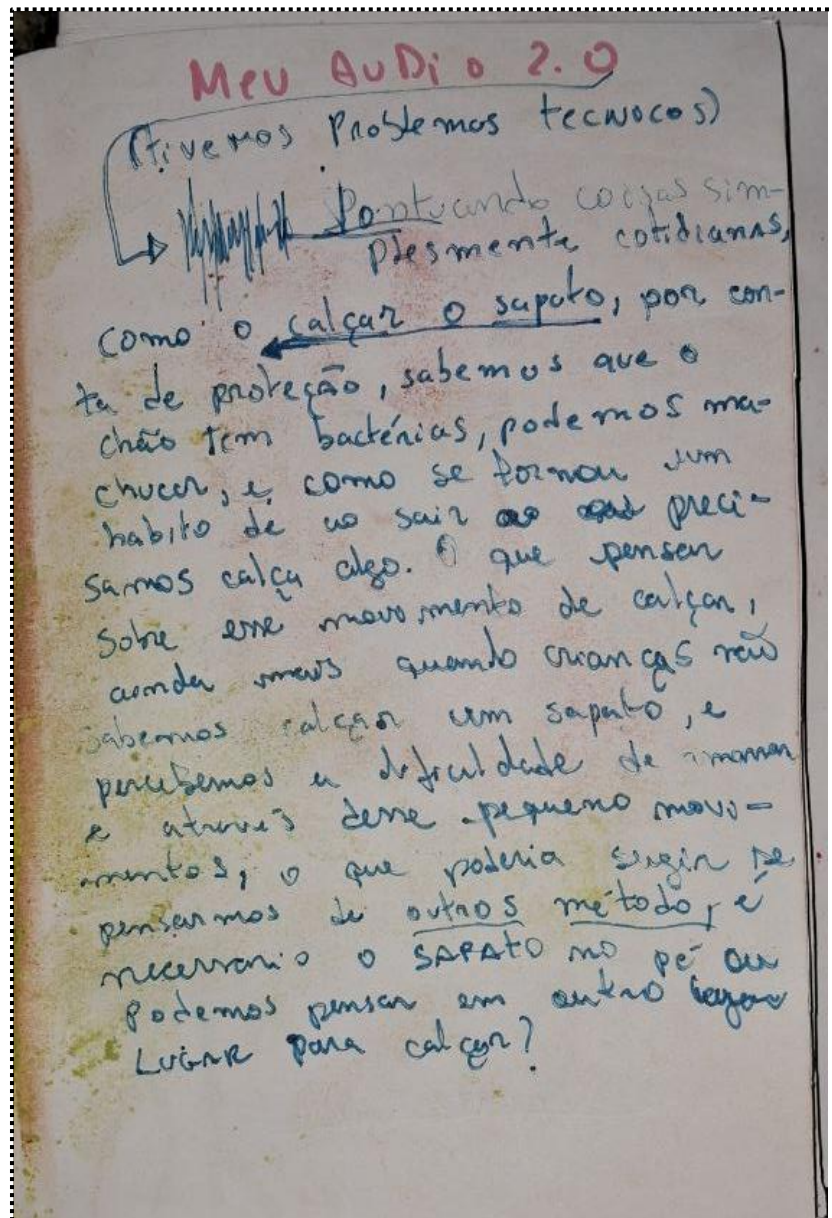 Meu AuDio 2.0
(Tivemos Problemas tecnocos)
Pontuando coisas sim-
plesmente cotidianas,
como o calçar o sapato, por con-
ta de proteção, sabemos que o
chão tem bactérias, podemos ma-
chucar, e como se tornou um
habito de ao sair preci-
samos calça algo. O que pensar
sobre esse movimento de calçar,
ainda mais quando crianças não
sabemos calçar um sapato, e
percebemos a dificuldade de amarrar
e através desse pequeno movi-
mentos, o que poderia sugir se
pensarmos de outros método, é
necessario o SAPATO no pé ou
Podemos pensar em outro
LUGAR para calçar?